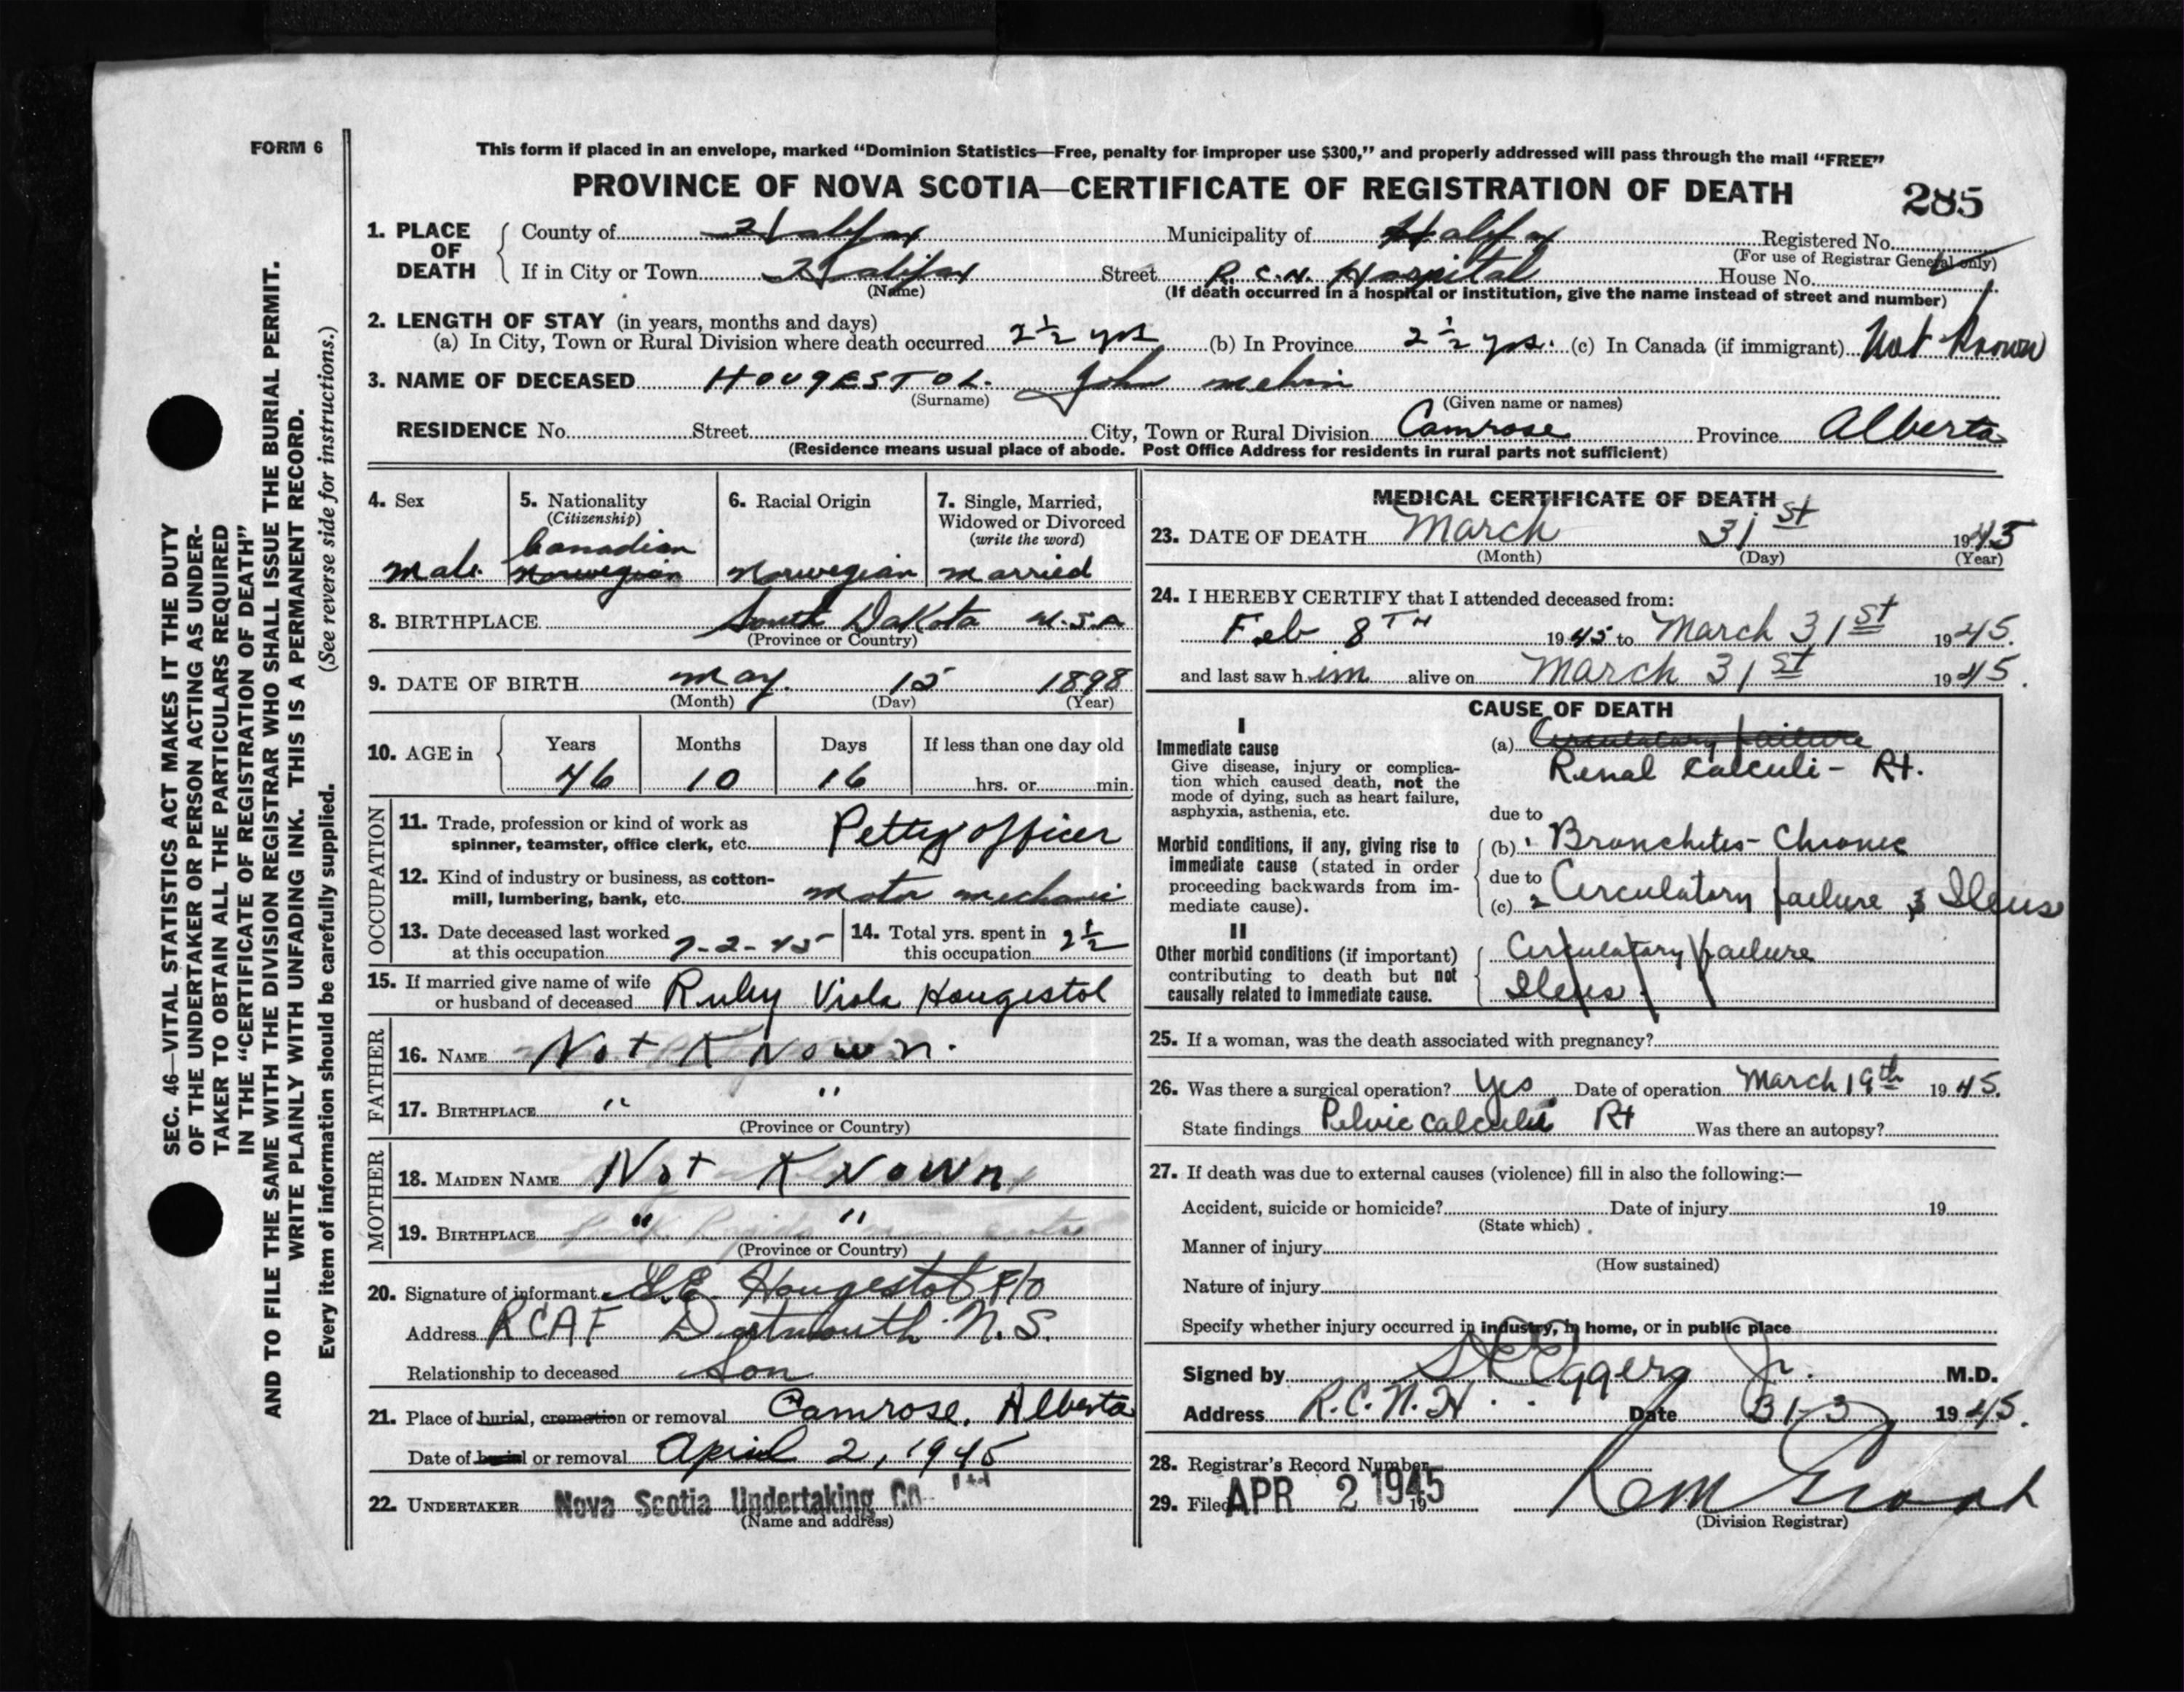 FORM 6
This form if placed in an envelope, marked “Dominion Statistics—Free, penalty for improper use $300,” and properly addressed will pass through the mail “FREE”
PROVINCE OF NOVA SCOTIA—CERTIFICATE OF REGISTRATION OF DEATH
285
1. PLACE OF DEATH
County of Halifax Municipality of Halifax Registered No.
(For use of Registrar General only)
If in City or Town Halifax Street R.C.N. Hospital House No.
(Name) (If death occurred in a hospital or institution, give the name instead of street and number)
2. LENGTH OF STAY (in years, months and days)
(a) In City, Town or Rural Division where death occurred 2½ yrs (b) In Province 2½ yrs. (c) In Canada (if immigrant) Not Known
3. NAME OF DECEASED HOUGESTOL. John Melvin
(Surname) (Given name or names)
RESIDENCE No. Street City, Town or Rural Division Camrose Province Alberta
(Residence means usual place of abode. Post Office Address for residents in rural parts not sufficient)
4. Sex
Male
5. Nationality
(Citizenship)
Canadian
Norwegian
6. Racial Origin
Norwegian
7. Single, Married,
Widowed or Divorced
(write the word)
Married
8. BIRTHPLACE South Dakota U.S.A
(Province or Country)
9. DATE OF BIRTH May. 15 1898
(Month) (Day) (Year)
10. AGE in
Years Months Days If less than one day old
46 10 16 hrs. or min.
OCCUPATION
11. Trade, profession or kind of work as
spinner, teamster, office clerk, etc. Petty officer
12. Kind of industry or business, as cotton-
mill, lumbering, bank, etc. motor mechanic
13. Date deceased last worked
at this occupation 7-2-45
14. Total yrs. spent in
this occupation 2½
15. If married give name of wife
or husband of deceased Ruby Viola Hougestol
FATHER
16. NAME Not Known.
17. BIRTHPLACE " "
(Province or Country)
MOTHER
18. MAIDEN NAME Not Known
19. BIRTHPLACE " "
(Province or Country)
20. Signature of informant Hougestol F/O
Address RCAF Dartmouth N.S.
Relationship to deceased Son
21. Place of burial, cremation or removal Camrose, Alberta
Date of burial or removal April 2, 1945
22. UNDERTAKER Nova Scotia Undertaking Co Ltd
(Name and address)
MEDICAL CERTIFICATE OF DEATH
23. DATE OF DEATH March 31st 1945
(Month) (Day) (Year)
24. I HEREBY CERTIFY that I attended deceased from:
Feb 8TH 1945 to March 31st 1945.
and last saw him alive on March 31st 1945.
CAUSE OF DEATH
I
Immediate cause
Give disease, injury or complica-
tion which caused death, not the
mode of dying, such as heart failure,
asphyxia, asthenia, etc.
(a) Circulatory failure
Renal Calculi - Rt.
due to
Morbid conditions, if any, giving rise to
immediate cause (stated in order
proceeding backwards from im-
mediate cause).
(b) 1 Bronchitis - Chronic
due to
(c) 2 Circulatory failure 3 Ileus
II
Other morbid conditions (if important)
contributing to death but not
causally related to immediate cause.
Circulatory failure
Ileus
25. If a woman, was the death associated with pregnancy?
26. Was there a surgical operation? Yes Date of operation March 19th 1945.
State findings Pelvic calculi Rt Was there an autopsy?
27. If death was due to external causes (violence) fill in also the following:—
Accident, suicide or homicide? Date of injury 19
(State which)
Manner of injury
(How sustained)
Nature of injury
Specify whether injury occurred in industry, in home, or in public place
Signed by Eggers Jr. M.D.
Address R.C.N.H. Date 31-3 1945.
28. Registrar's Record Number
29. Filed APR 2 1945 19
(Division Registrar)
SEC. 46—VITAL STATISTICS ACT MAKES IT THE DUTY
OF THE UNDERTAKER OR PERSON ACTING AS UNDER-
TAKER TO OBTAIN ALL THE PARTICULARS REQUIRED
IN THE “CERTIFICATE OF REGISTRATION OF DEATH”
AND TO FILE THE SAME WITH THE DIVISION REGISTRAR WHO SHALL ISSUE THE BURIAL PERMIT.
WRITE PLAINLY WITH UNFADING INK. THIS IS A PERMANENT RECORD.
Every item of information should be carefully supplied. (See reverse side for instructions.)